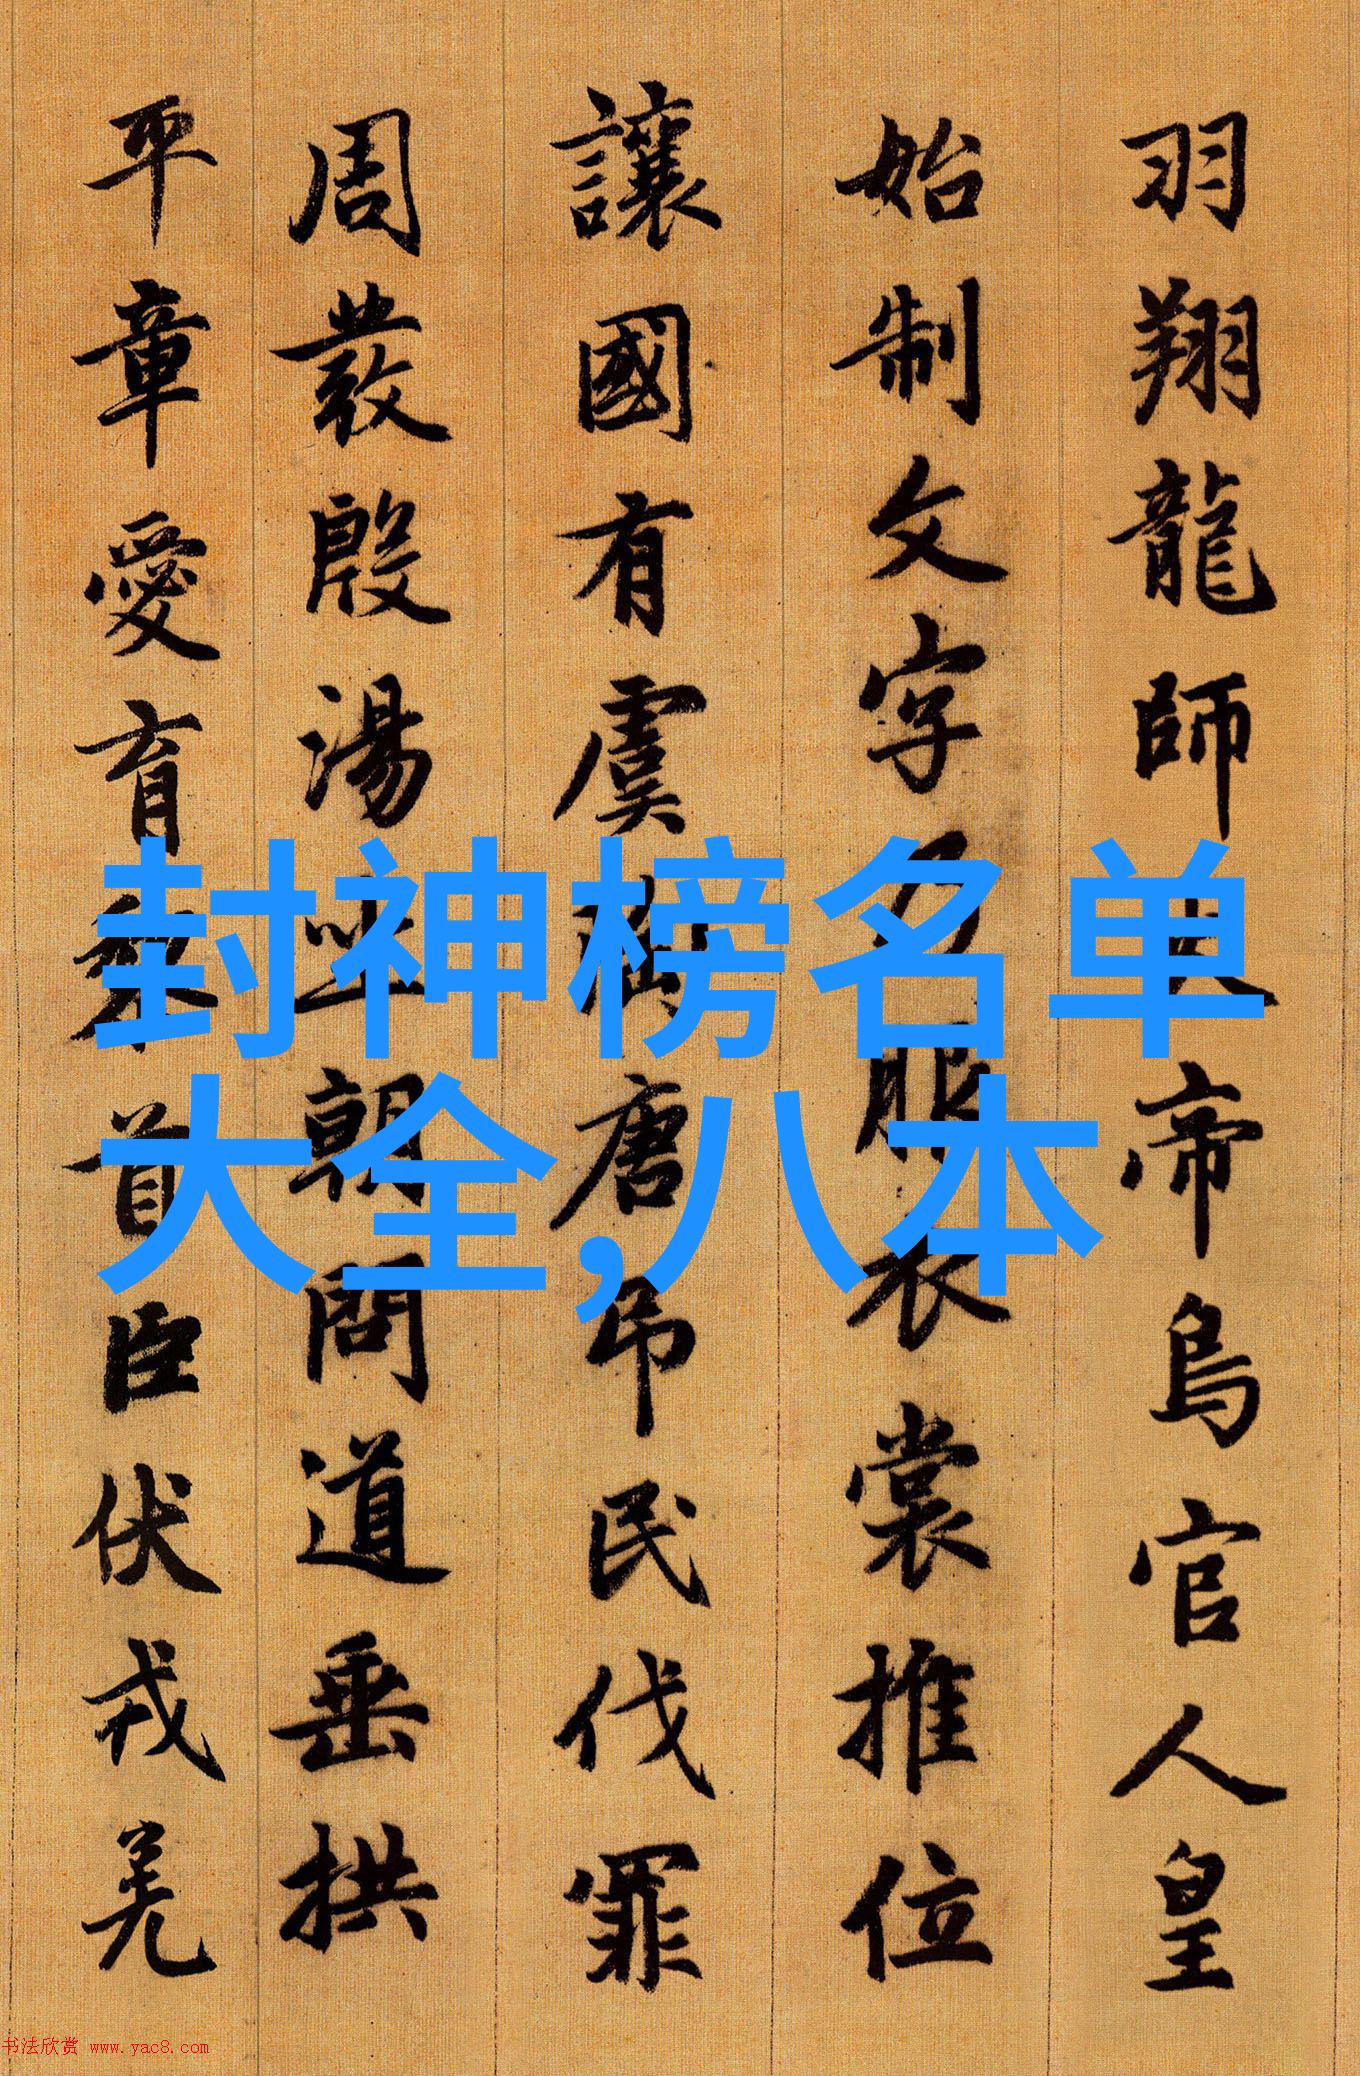 羽翔龍師火帝鳥官人皇
始制文字乃服衣裳推位
讓國有虞陶唐吊民伐罪
周發殷湯坐朝問道垂拱
平章愛育黎首臣伏戎羌
封神榜名单
大全,八本
书法欣赏 www.yac8.com